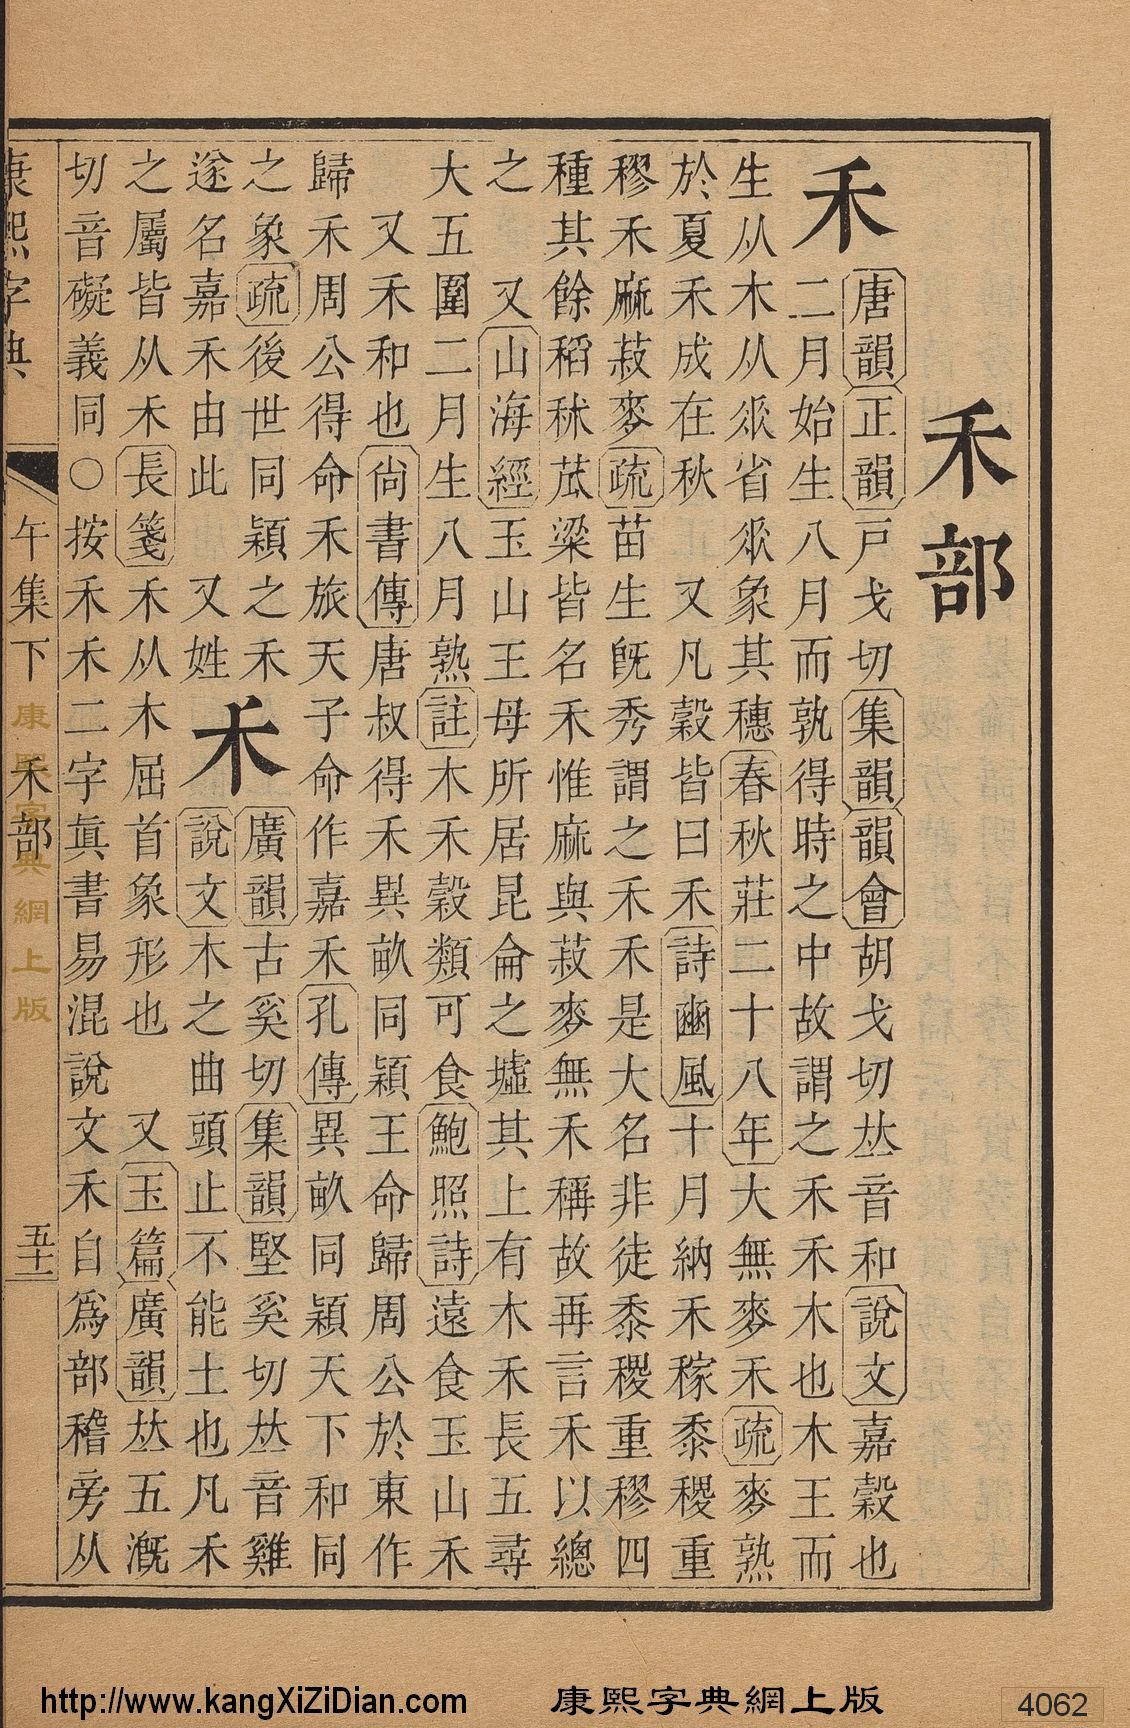 禾部
禾
唐韻正韻戸戈切集韻韻會胡戈切𠀤音和說文嘉穀也
二月始生八月而孰得時之中故謂之禾禾木也木王而
生从木从𠂹省𠂹象其穗春秋莊二十八年大無麥禾疏麥熟
於夏禾成在秋 又凡穀皆曰禾詩豳風十月納禾稼黍稷重
穋禾麻菽麥疏苗生旣秀謂之禾禾是大名非徒黍稷重穋四
種其餘稻秫苽粱皆名禾惟麻與菽麥無禾稱故再言禾以總
之 又山海經玉山王母所居昆侖之墟其上有木禾長五尋
大五圍二月生八月熟註木禾穀類可食鮑照詩遠食玉山禾
又禾和也尙書傳唐叔得禾異畝同穎王命歸周公於東作
歸禾周公得命禾旅天子命作嘉禾孔傳異畝同穎天下和同
之象疏後世同穎之禾
遂名嘉禾由此 又姓
𥝌
廣韻古奚切集韻堅奚切𠀤音雞
說文木之曲頭止不能上也凡𥝌
之屬皆从𥝌長箋𥝌从木屈首象形也 又玉篇廣韻𠀤五漑
切音礙義同○按禾𥝌二字眞書易混說文𥝌自爲部稽旁从
康熙字典
午集下
禾部
五十一
康熙字典網上版
http://www.kangXiZiDian.com 康熙字典網上版 4062